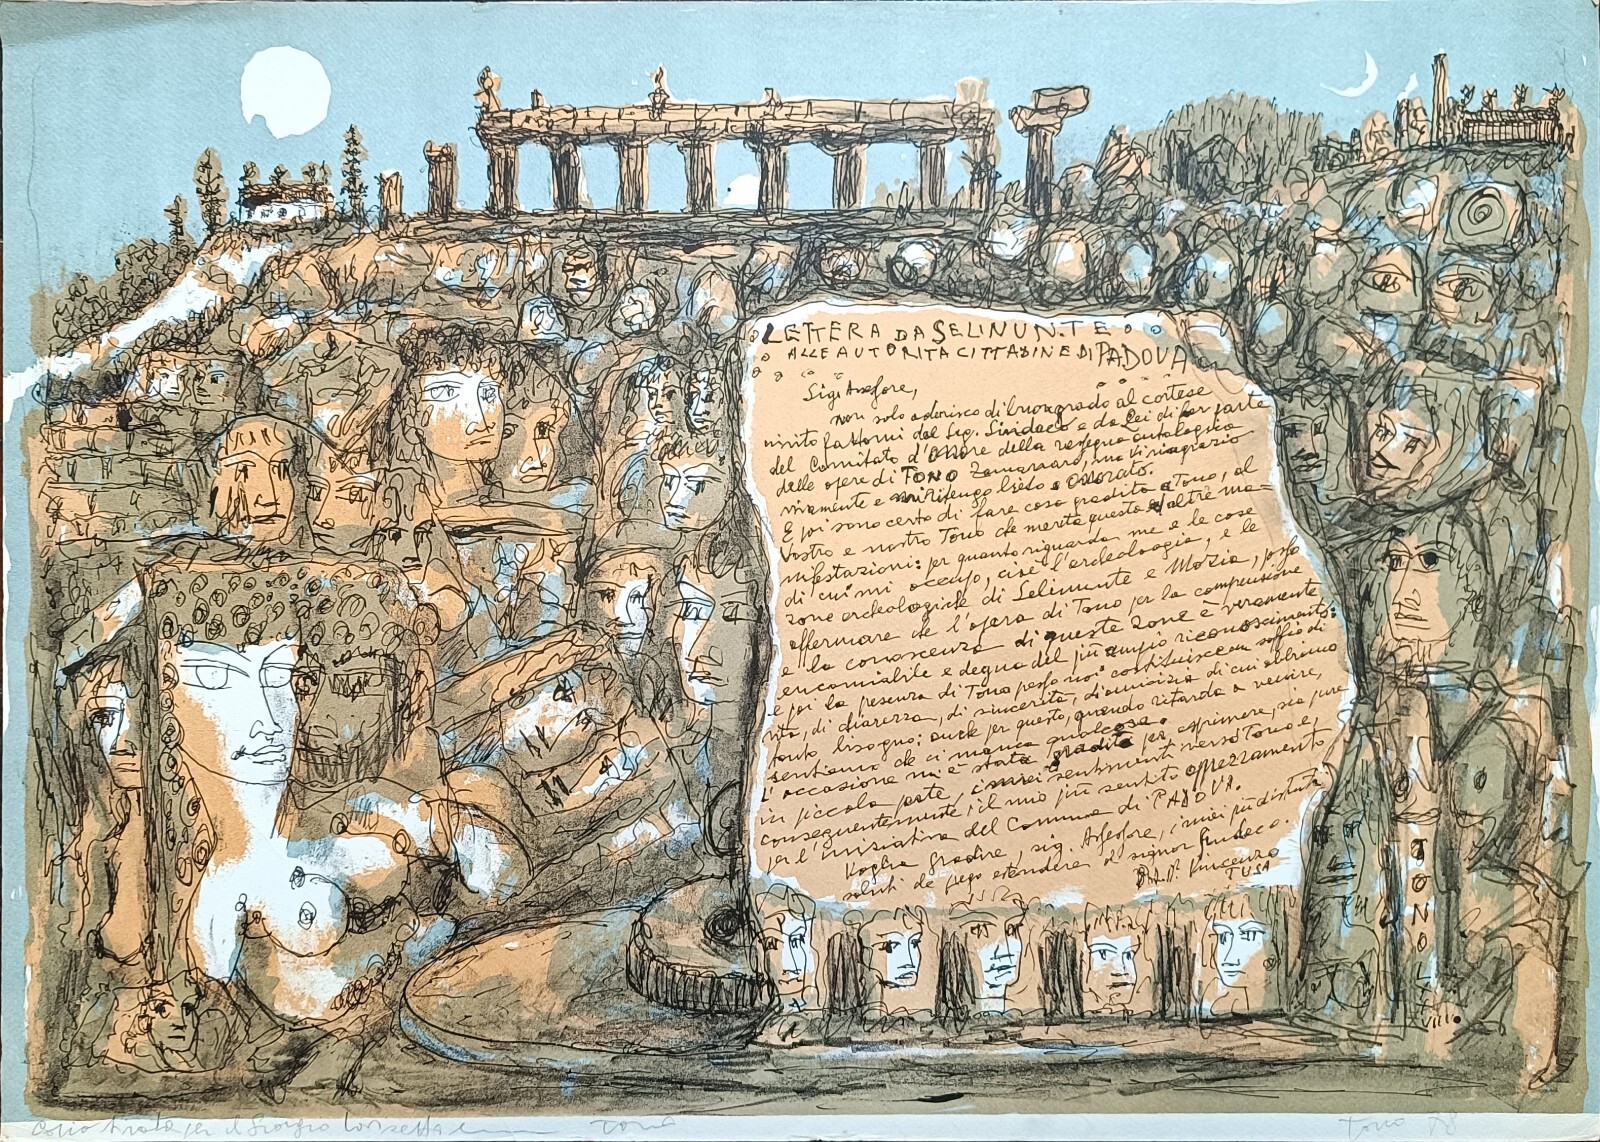 LETTERA DA SELINUNTE
ALLE AUTORITÀ CITTADINE DI PADOVA
Sig. Assessore,
non solo aderisco di buon grado al cortese
invito fattomi dal Sig. Sindaco e da Lei di far parte
del Comitato d'Onore della rassegna antologica
delle opere di TONO Zancanaro, ma Vi ringrazio
vivamente e mi ritengo lieto e onorato.
E poi sono certo di fare cosa gradita a Tono, al
Vostro e nostro Tono che merita questa ed altre ma-
nifestazioni: per quanto riguarda me e le cose
di cui mi occupo, cioè l'archeologia, e le
zone archeologiche di Selinunte e Mozia, posso
affermare che l'opera di Tono per la comprensione
e la conoscenza di queste zone è veramente
encomiabile e degna del più ampio riconoscimento:
e poi la presenza di Tono presso noi costituisce un soffio di
vita, di chiarezza, di sincerità, d'amicizia di cui abbiamo
tanto bisogno; anche per questo, quando ritarda a venire,
sentiamo che ci manca qualcosa.
L'occasione mi è stata gradita per esprimere, sia pure
in piccola parte, i miei sentimenti verso Tono e,
conseguentemente, il mio più sentito apprezzamento
per l'iniziativa del Comune di PADOVA.
Voglia gradire, sig. Assessore, i miei più distinti
saluti che prego estendere al signor Sindaco.
Vincenzo
TUSA
TONO
LXX
VIII
per il Giorgio
Tono
Tono 78